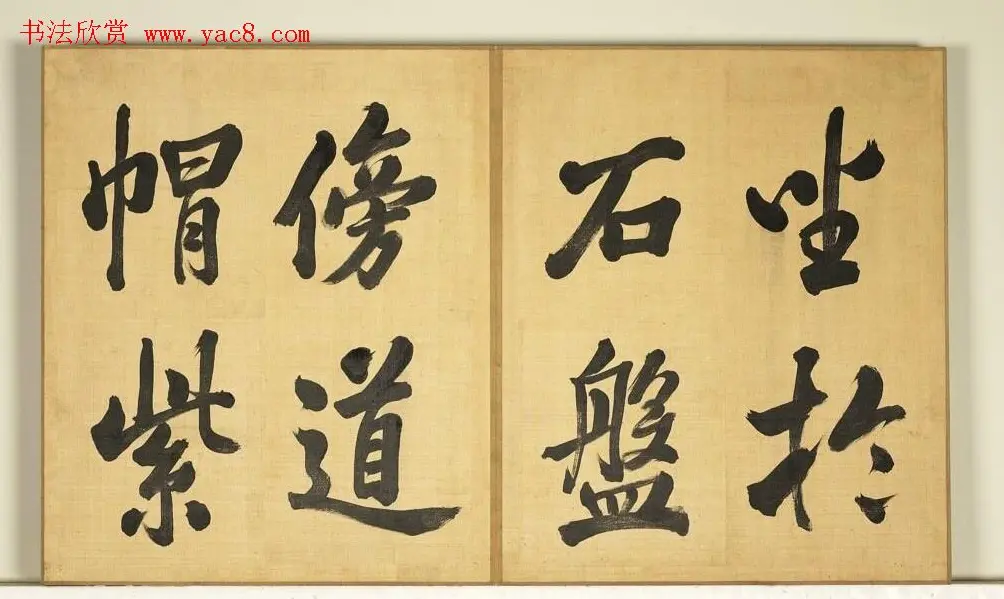 书法欣赏 www.yac8.com
坐於
石盤
傍道
帽紫